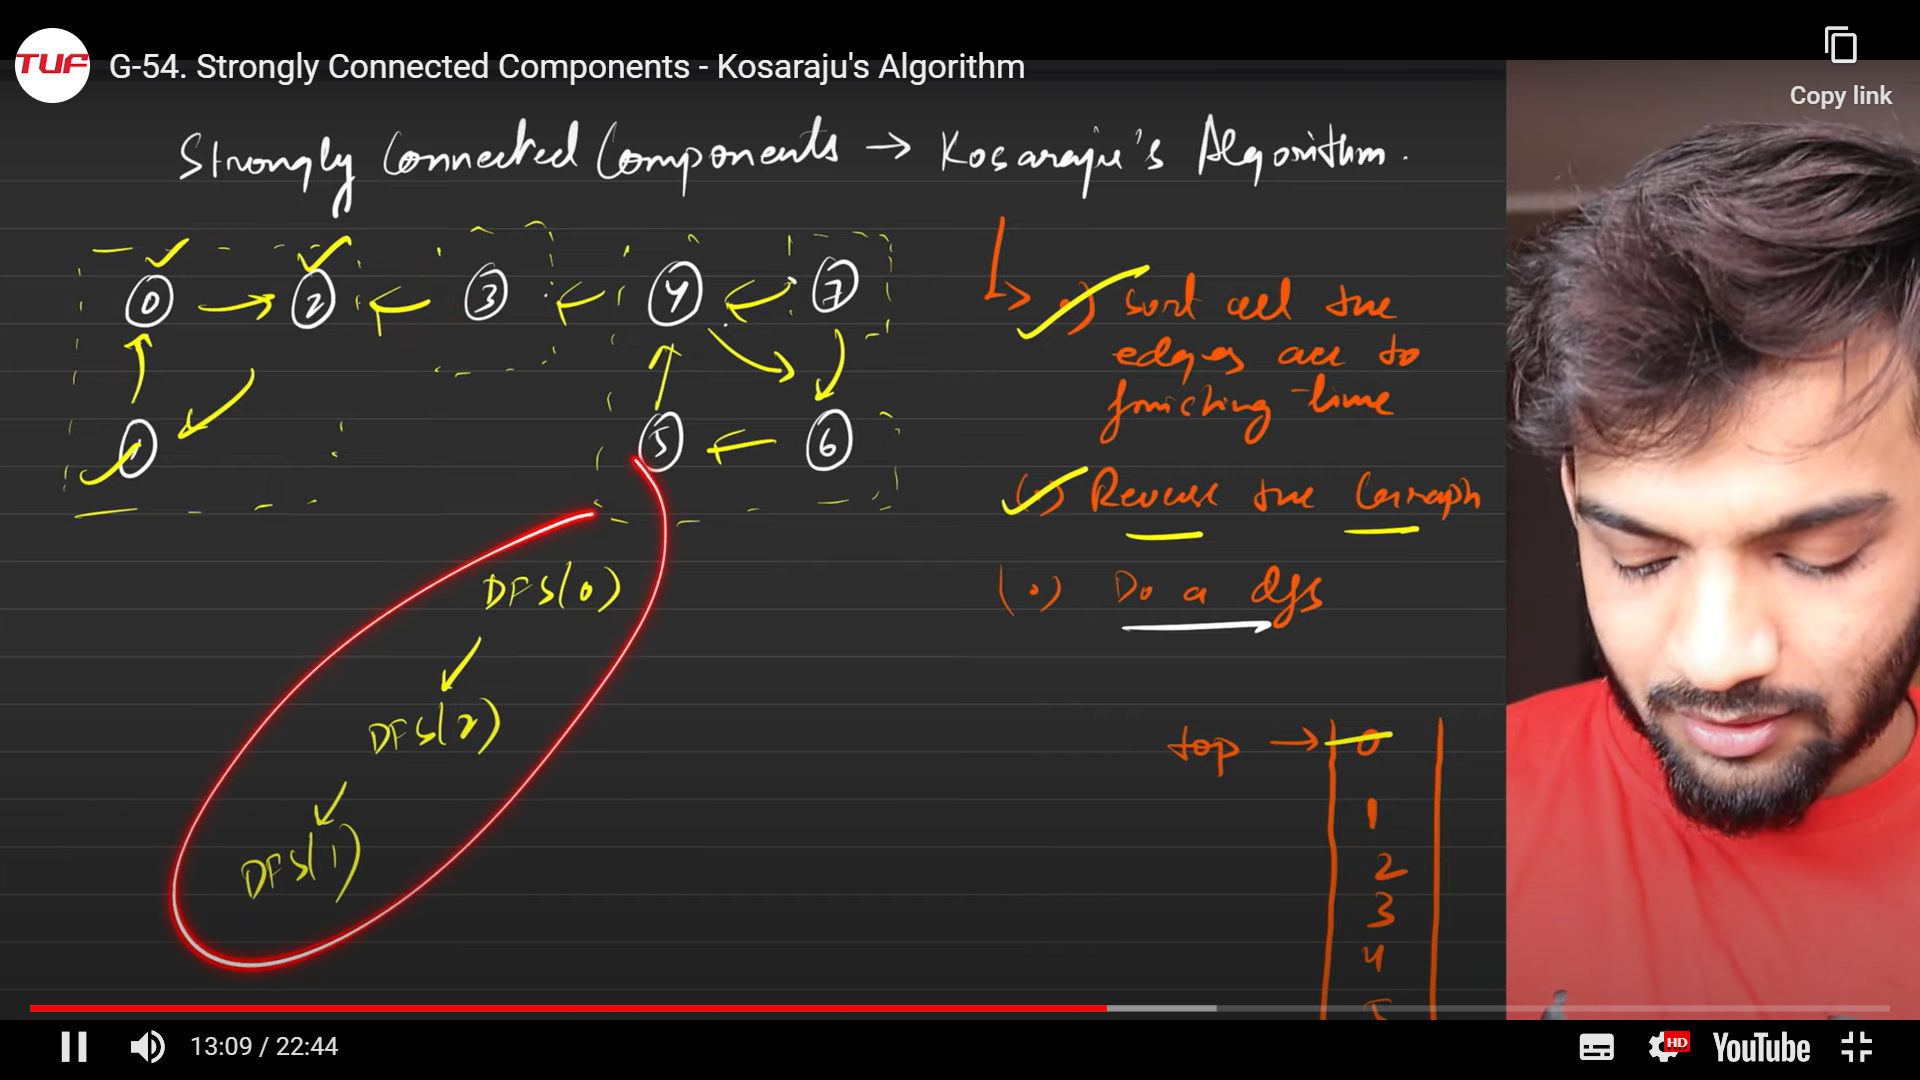 TUF
G-54. Strongly Connected Components - Kosaraju's Algorithm
Copy link
Strongly Connected Components → Kosaraju's Algorithm.
0 → 2 ← 3 ← 4 ← 7
1 5 ← 6
(•) Sort all the
edges acc to
finishing time
(•) Reverse the Graph
(•) Do a dfs
DFS(0)
DFS(2)
DFS(1)
top → 0
1
2
3
4
5
13:09 / 22:44
HD
YouTube